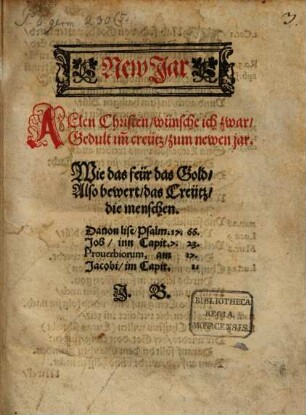 New Jar
ALlen Christen/ wünsche ich zwar/
Gedult im̃ creütz/ zum newen jar.
Wie das feür das Gold/
Also bewert/ das Creütz/
die menschen.
Dauon lise/ Psalm. 17. 66.
Job/ inn Capit. 7. 23.
Prouerbiorum. am 17.
Jacobi/ im Capit. 1.
J. B.
BIBLIOTHECA
REGIA
MONACENSIS.